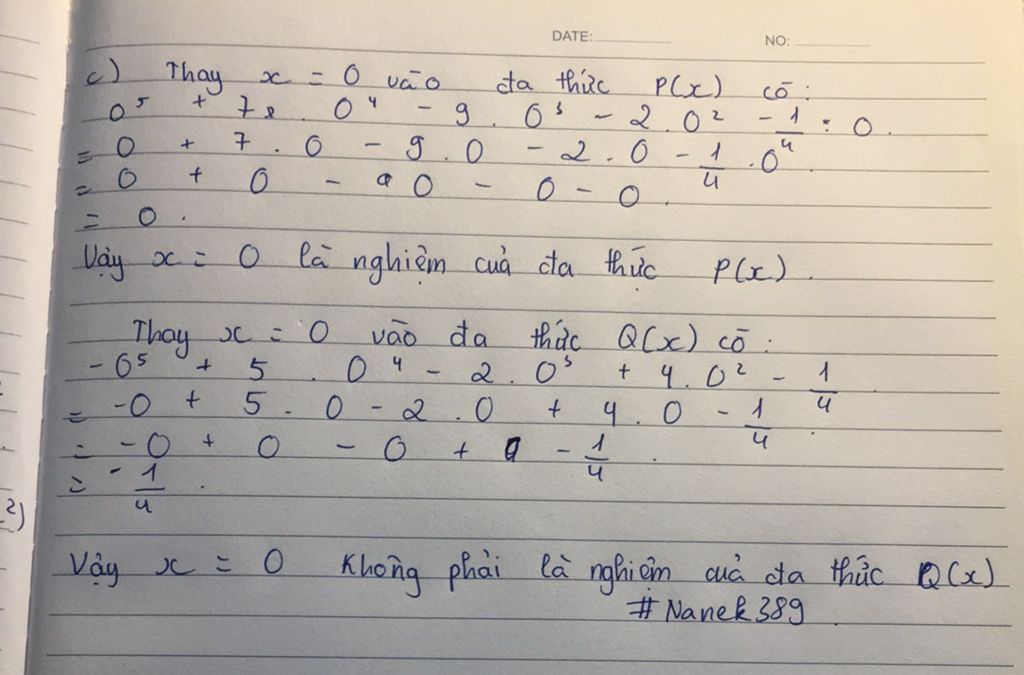 DATE: NO:
c) Thay x = 0 vào đa thức P(x) có:
0⁵ + 7 . 0⁴ - 9 . 0³ - 2 . 0² - 1/4 . 0.
= 0 + 7 . 0 - 9 . 0 - 2 . 0 - 1/4 . 0
= 0 + 0 - 0 - 0 - 0.
= 0.
Vậy x = 0 là nghiệm của đa thức P(x).
Thay x = 0 vào đa thức Q(x) có:
-0⁵ + 5 . 0⁴ - 2 . 0³ + 4 . 0² - 1/4
= -0 + 5 . 0 - 2 . 0 + 4 . 0 - 1/4.
= -0 + 0 - 0 + 0 - 1/4.
= -1/4.
2)
Vậy x = 0 Không phải là nghiệm của đa thức Q(x)
#Nanek389